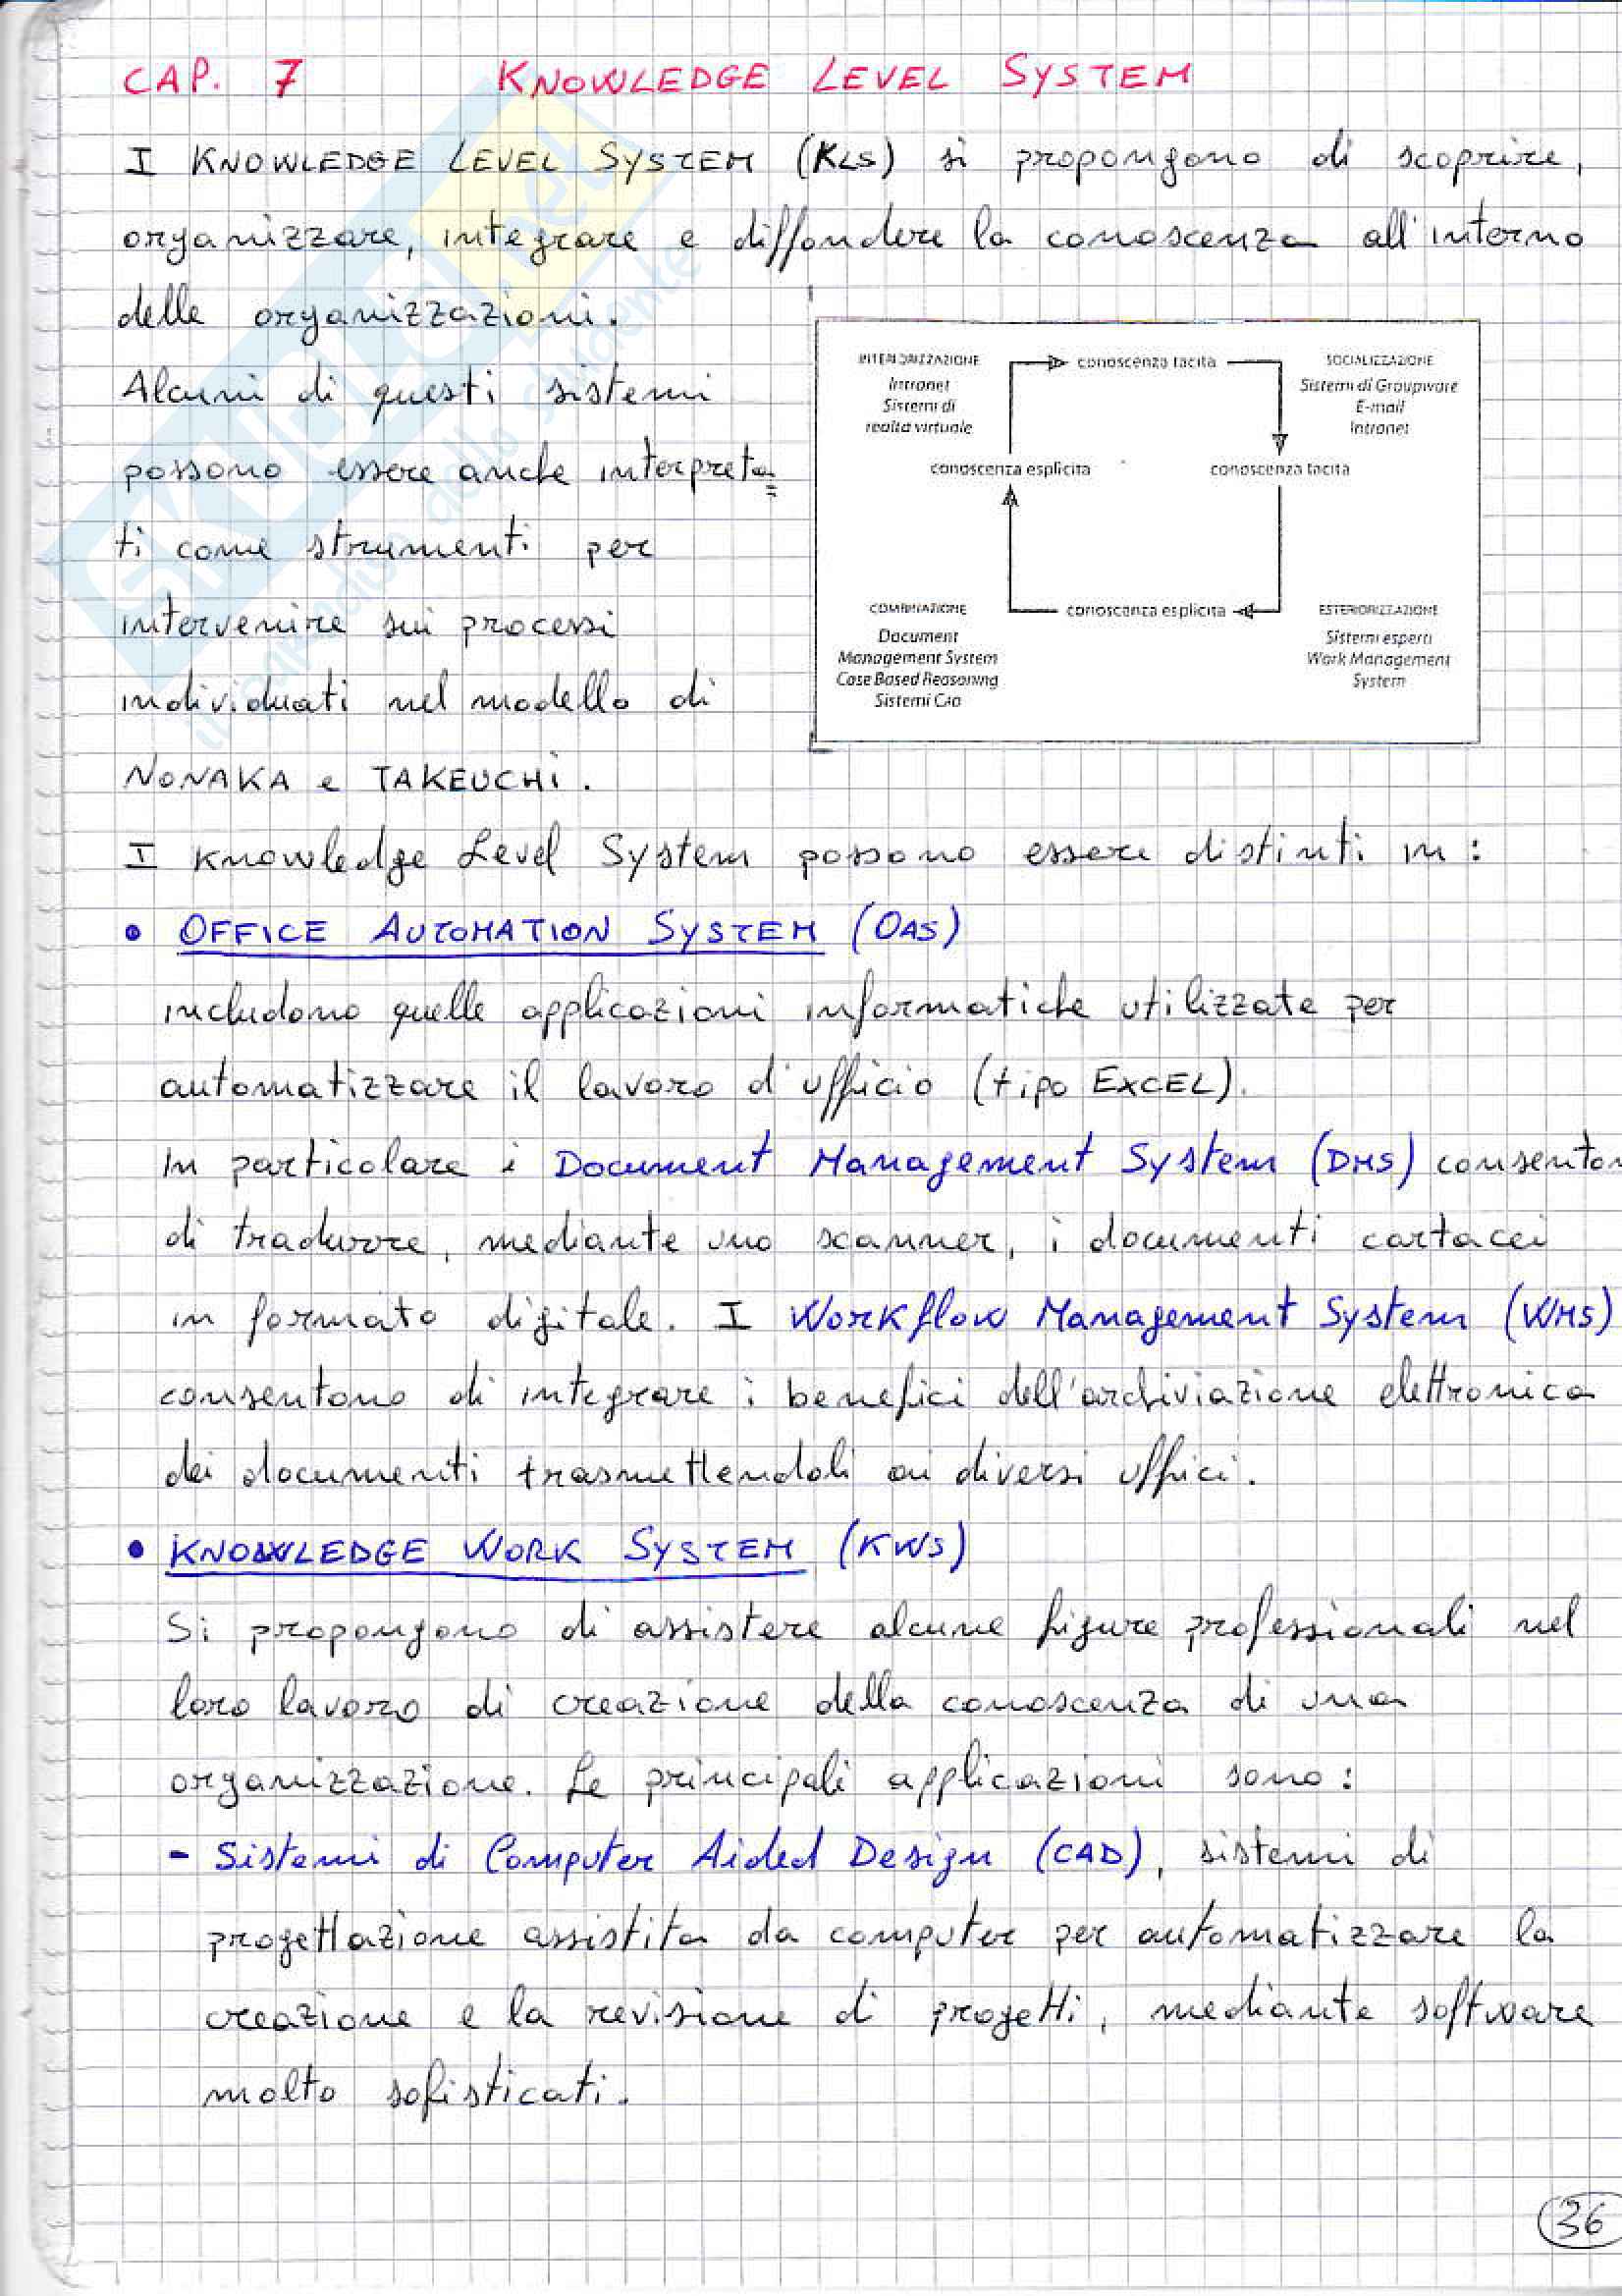 CAP. 7 KNOWLEDGE LEVEL SYSTEM
I KNOWLEDGE LEVEL SYSTEM (KLS) si propongono di scoprire,
organizzare, integrare e diffondere la conoscenza all'interno
delle organizzazioni.
Alcuni di questi sistemi
possono essere anche interpreta=
ti come strumenti per
intervenire sui processi
individuati nel modello di
NONAKA e TAKEUCHI.
INTERIORIZZAZIONE
Intranet
Sistemi di
realtà virtuale
conoscenza tacita
SOCIALIZZAZIONE
Sistemi di Groupware
E-mail
Intranet
conoscenza esplicita
conoscenza tacita
COMBINAZIONE
Document
Management System
Case Based Reasoning
Sistemi Cad
conoscenza esplicita
ESTERIORIZZAZIONE
Sistemi esperti
Work Management
System
I Knowledge Level System possono essere distinti in:
• OFFICE AUTOMATION SYSTEM (OAS)
includono quelle applicazioni informatiche utilizzate per
automatizzare il lavoro d'ufficio (tipo EXCEL).
In particolare i Document Management System (DMS) consenton
di tradurre, mediante uno scanner, i documenti cartacei
in formato digitale. I Workflow Management System (WMS)
consentono di integrare i benefici dell'archiviazione elettronica
dei documenti trasmettendoli ai diversi uffici.
• KNOWLEDGE WORK SYSTEM (KWS)
Si propongono di assistere alcune figure professionali nel
loro lavoro di creazione della conoscenza di una
organizzazione. Le principali applicazioni sono:
- Sistemi di Computer Aided Design (CAD), sistemi di
progettazione assistita da computer per automatizzare la
creazione e la revisione di progetti, mediante software
molto sofisticati.
36
SKUOLA.net
il paradiso dello studente